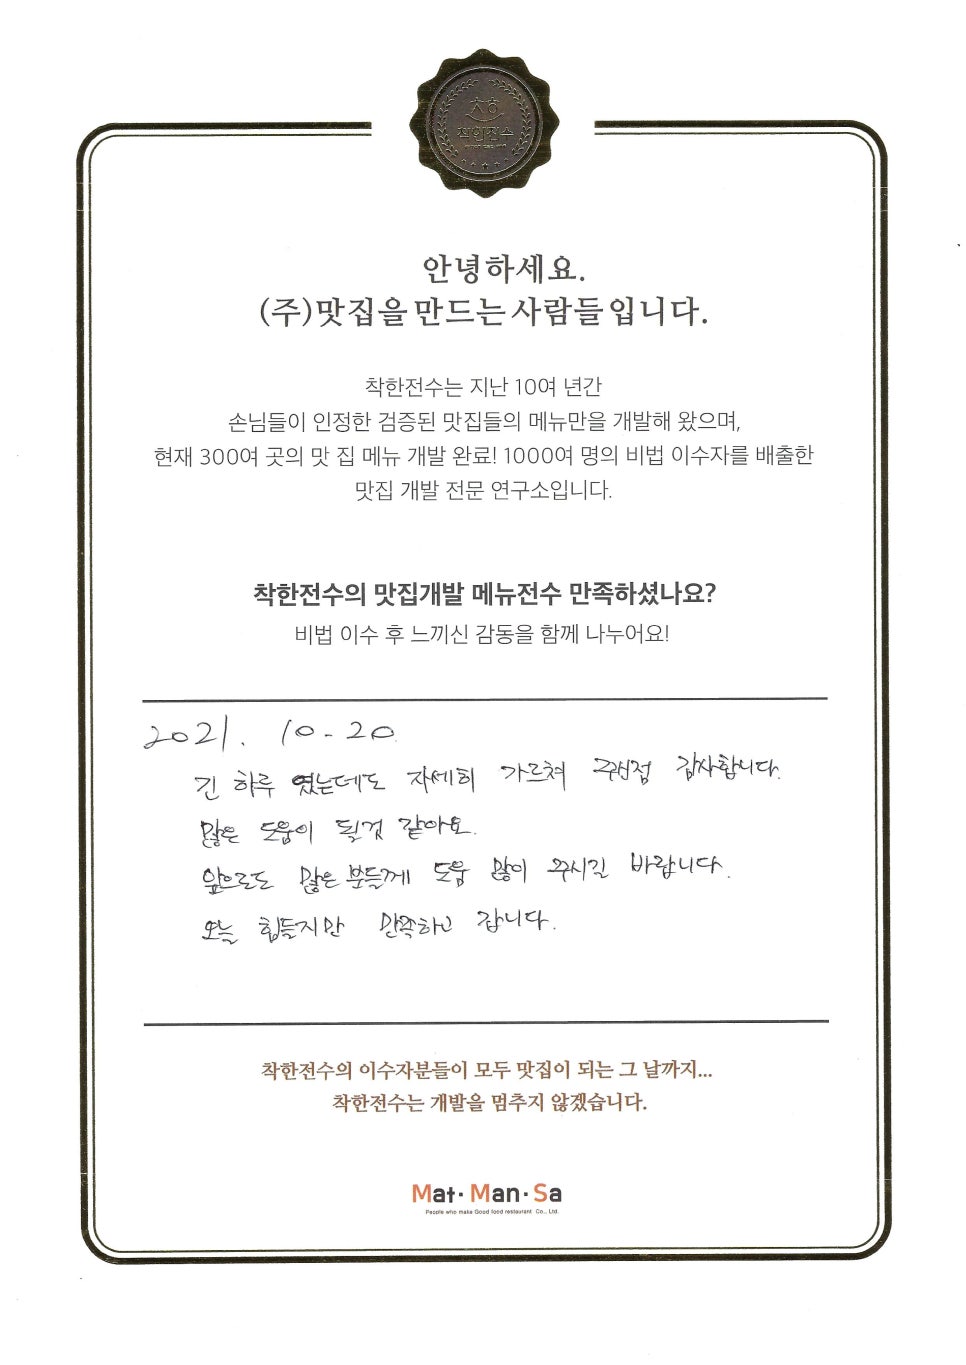 착한전수
안녕하세요.
(주)맛집을 만드는 사람들 입니다.
착한전수는 지난 10여 년간
손님들이 인정한 검증된 맛집들의 메뉴만을 개발해 왔으며,
현재 300여 곳의 맛 집 메뉴 개발 완료! 1000여 명의 비법 이수자를 배출한
맛집 개발 전문 연구소입니다.
착한전수의 맛집개발 메뉴전수 만족하셨나요?
비법 이수 후 느끼신 감동을 함께 나누어요!
2021. 10-20
긴 하루 였는데도 자세히 가르쳐 주신점 감사합니다.
많은 도움이 될것 같아요.
앞으로도 많은 분들께 도움 많이 주시길 바랍니다.
오늘 힘들지만 만족하고 갑니다.
착한전수의 이수자분들이 모두 맛집이 되는 그 날까지...
착한전수는 개발을 멈추지 않겠습니다.
Mat·Man·Sa
People who make Good food restaurant Co., Ltd.